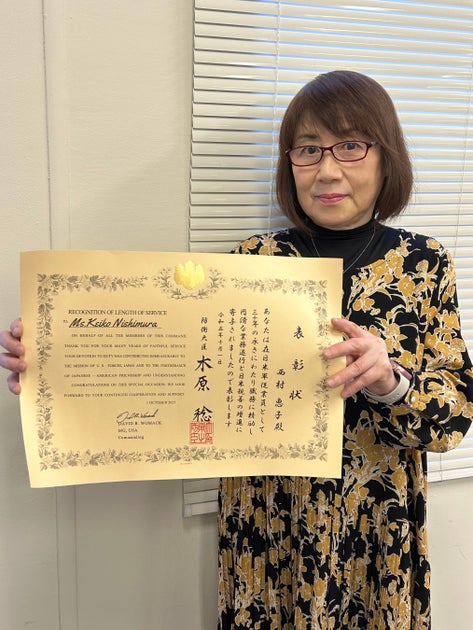 RECOGNITION OF LENGTH OF SERVICE
To Ms. Keiko Nishimura
ON BEHALF OF ALL THE MEMBERS OF THIS COMMAND
THANK YOU FOR YOUR MANY YEARS OF FAITHFUL SERVICE.
YOUR DEVOTION TO DUTY HAS CONTRIBUTED IMMEASURABLY TO
THE MISSION OF U.S. FORCES, JAPAN AND TO THE FURTHERANCE
OF JAPANESE - AMERICAN FRIENDSHIP AND UNDERSTANDING.
CONGRATULATIONS ON THIS SPECIAL OCCASION. WE LOOK
FORWARD TO YOUR CONTINUED COOPERATION AND SUPPORT
1 OCTOBER 2023
DAVID B. WOMACK
MG, USA
Commanding
表彰状
西村 恵子殿
あなたは在日米軍従業員として
三十年の永きにわたり職務に精励し
円滑な業務遂行と日米親善の増進に
寄与されましたので表彰します
令和五年十月一日
防衛大臣 木原 稔